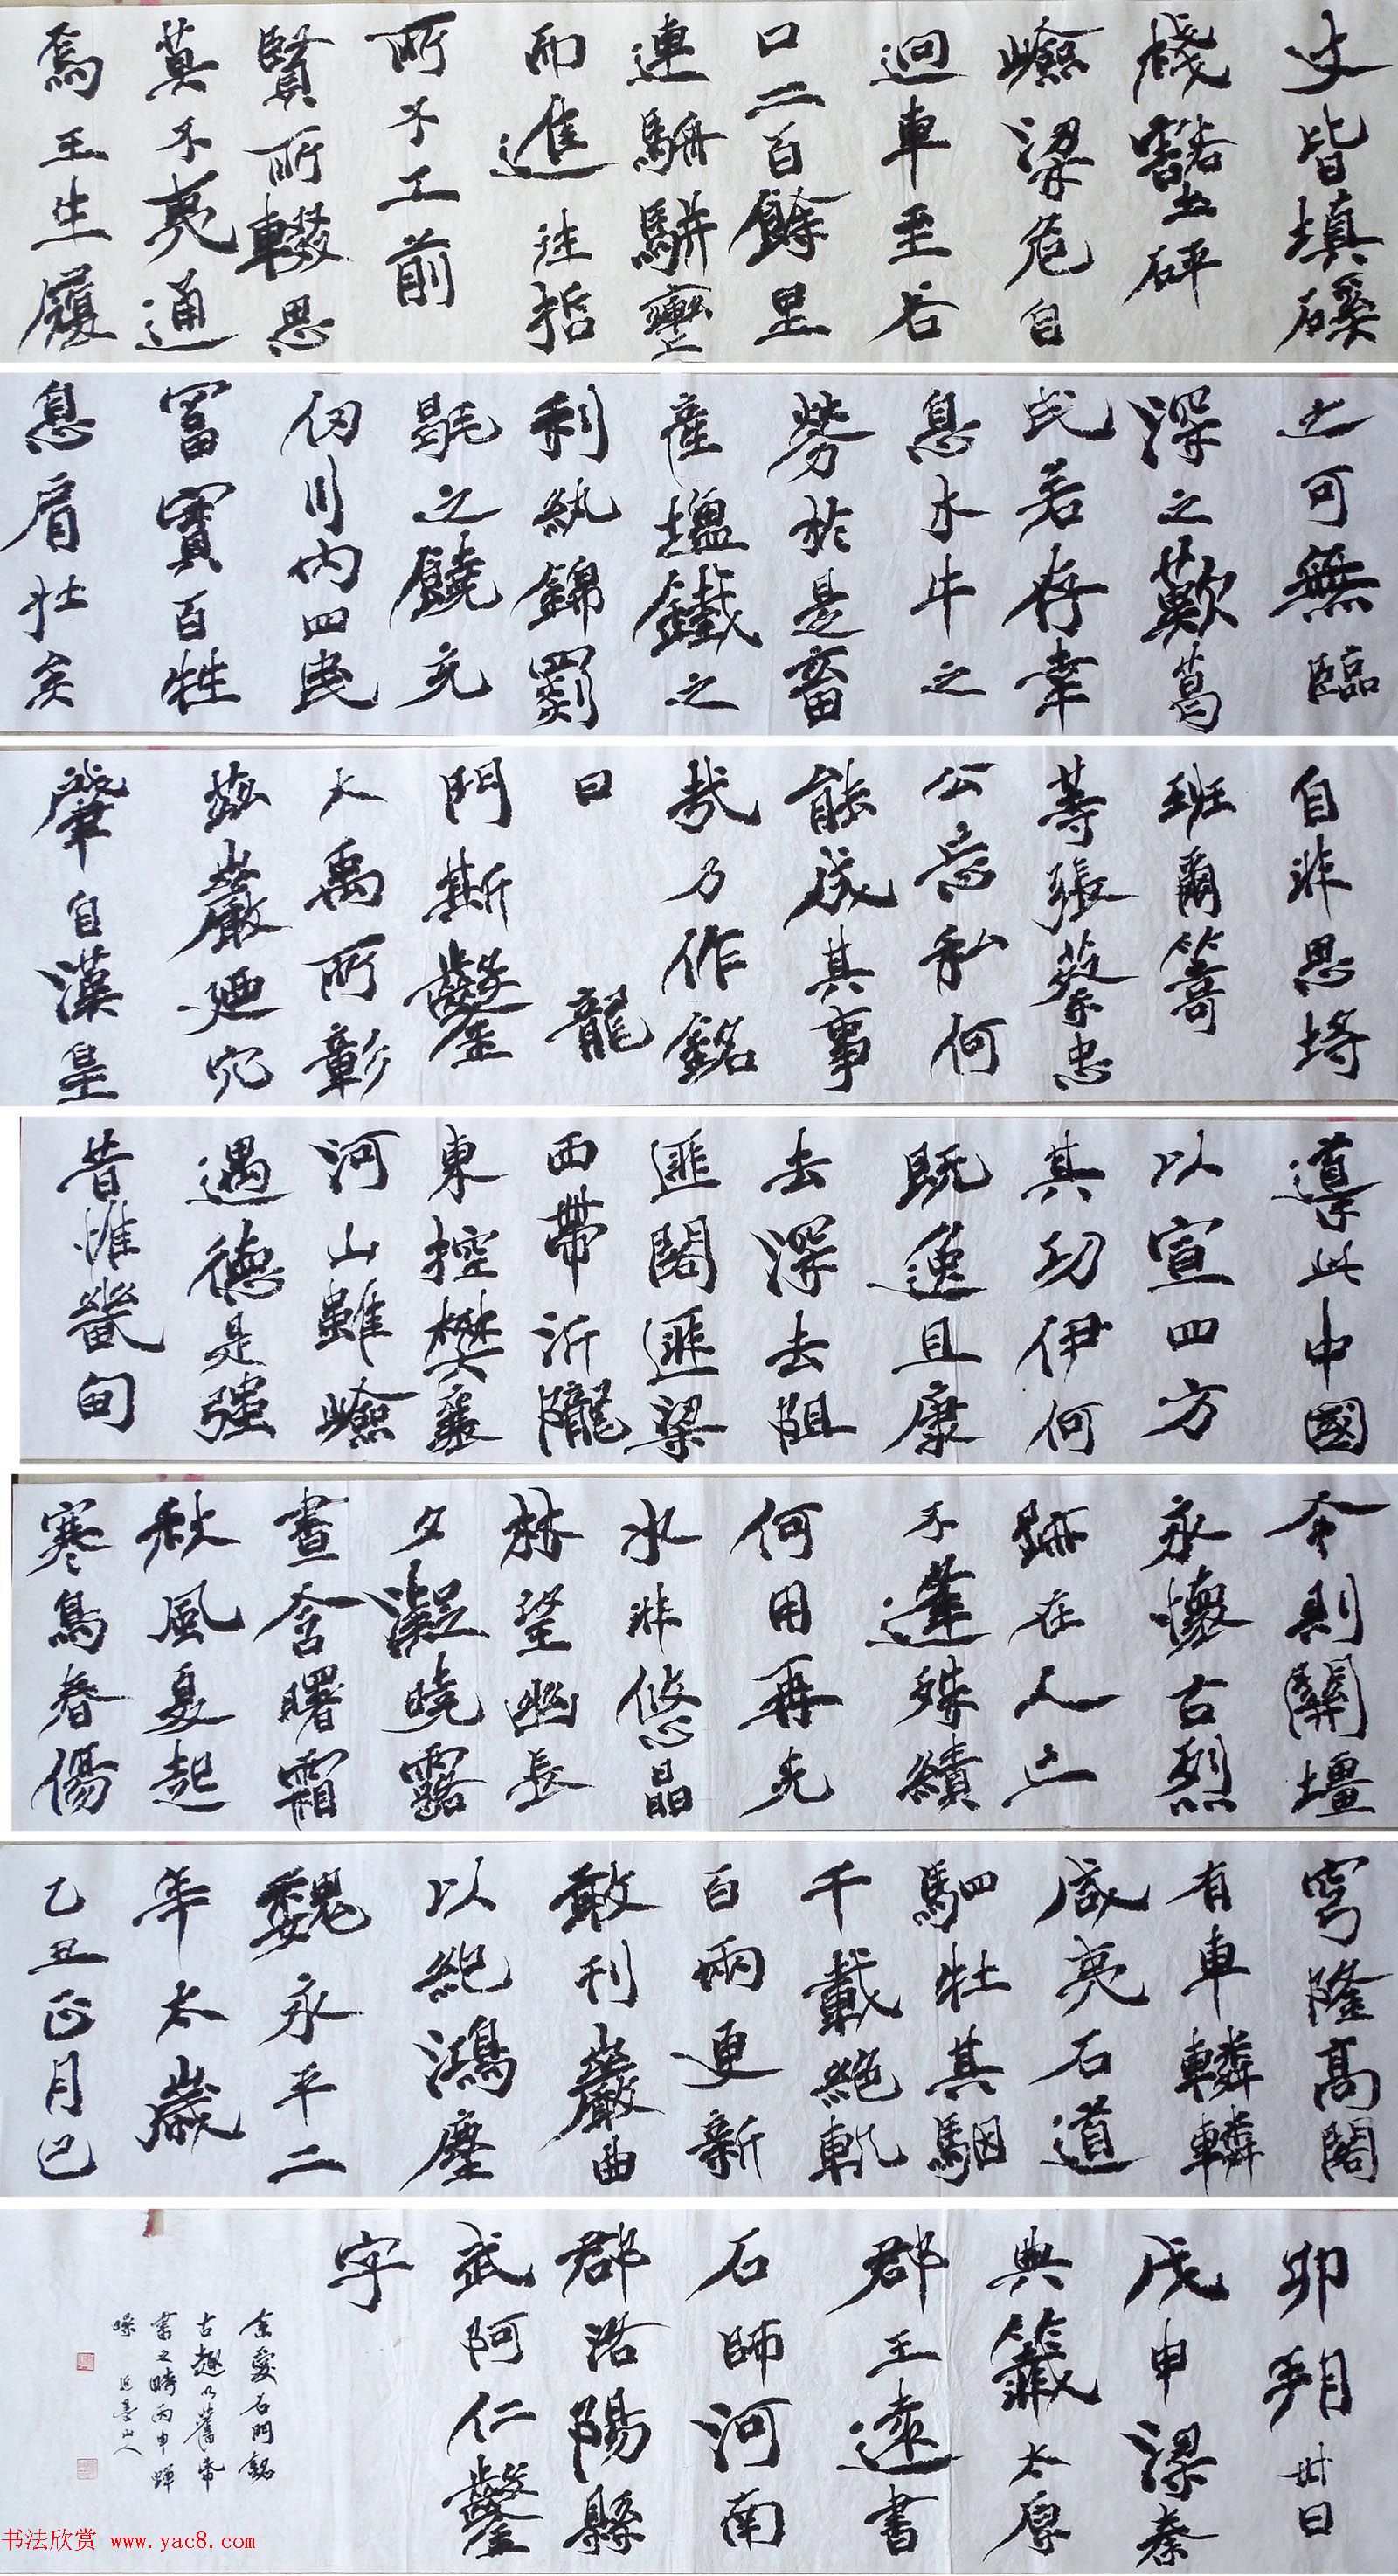 丈皆填磎
棧壑砰
嶮梁危自
迴車至谷
口二百餘里
連輈駢轡
而進往哲
所不工前
賢所輟思
莫不夷通
焉王生履
之可無臨
深之歎葛
氏若存幸
息木牛之
勞於是畜
產塩鐵之
利紈錦罽
毼之饒充
仞川內四民
富實百姓
息肩壯矣
自非思埒
班爾籌
等張蔡忠
公忘私何
能成其事
哉乃作銘
曰龍
門斯鑿
大禹所彰
茲巖廼穴
肇自漢皇
導此中國
以宣四方
其功伊何
既逸且康
去深去阻
匪閣匪梁
西帶汧隴
東控樊襄
河山雖嶮
遏德是強
昔惟畿甸
今則關壃
永懷古烈
跡在人亡
不逢殊績
何用再光
水非悠晶
林望幽長
夕凝曉露
晝含曙霜
秋風夏起
寒鳥春傷
穹隆高閣
有車轔轔
咸夷石道
駟牡其駰
千載絕軌
百兩更新
敢刊巖曲
以紀鴻塵
魏永平二
年太歲
乙丑正月己
卯朔卅日
戊申梁秦
典籤太原
郡王遠書
石師河南
郡洛陽縣
武阿仁鑿
字
余愛石門銘
古趣以舊帋
書之時丙申蟬
噪 山人
书法欣赏 www.yac8.com